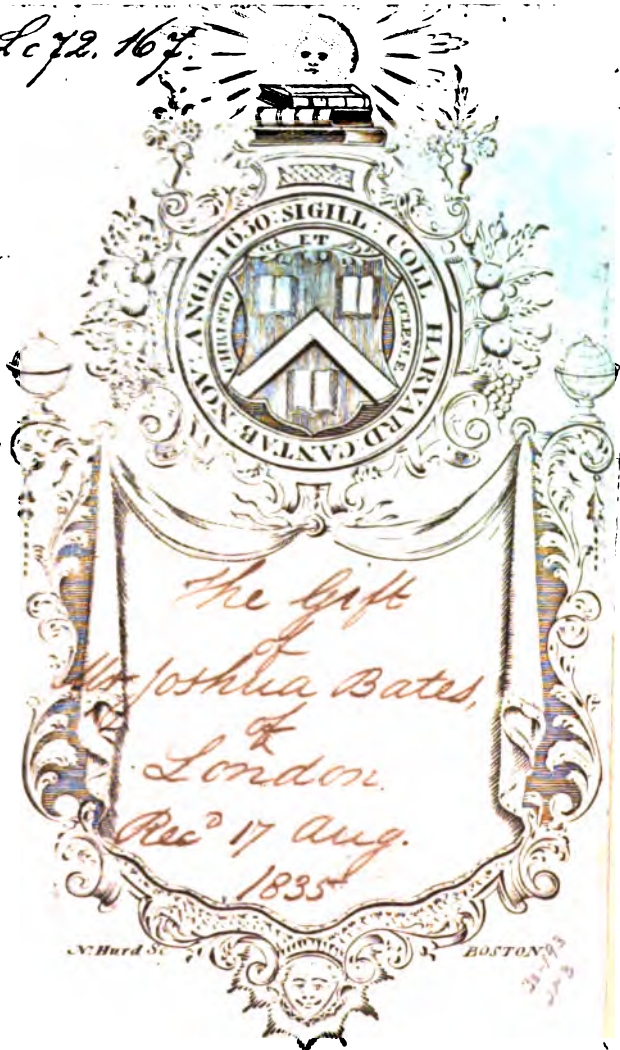 Lc 72. 167.
SIGILL : COLL HARVARD : CANTAB NOV. ANGL. 1650 :
ET
CHRISTO
ECCLESIÆ
The Gift
of
Mr Joshua Bates,
of
London.
Recd 17 Aug.
1835
N. Hurd Sc
BOSTON